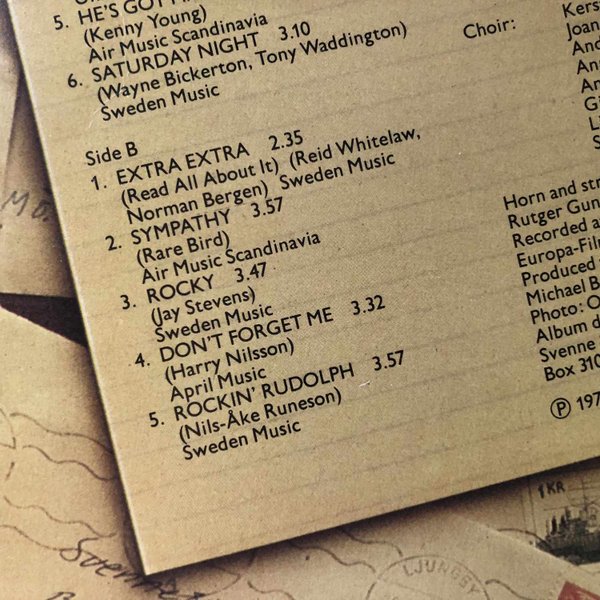 5. HE'S GOT
(Kenny Young)
Air Music Scandinavia
6. SATURDAY NIGHT 3.10
(Wayne Bickerton, Tony Waddington)
Sweden Music
Side B
1. EXTRA EXTRA 2.35
(Read All About It) (Reid Whitelaw,
Norman Bergen) Sweden Music
2. SYMPATHY 3.57
(Rare Bird)
Air Music Scandinavia
3. ROCKY 3.47
(Jay Stevens)
Sweden Music
4. DON'T FORGET ME 3.32
(Harry Nilsson)
April Music
5. ROCKIN' RUDOLPH 3.57
(Nils-Åke Runeson)
Sweden Music
Choir:
Kers
Joan
And
Ann
An
Horn and str
Rutger Gun
Recorded a
Europa-Film
Produced
Michael B
Photo: O
Album d
Svenne
Box 310
Ⓟ 197
1 KR
LJUNGBY